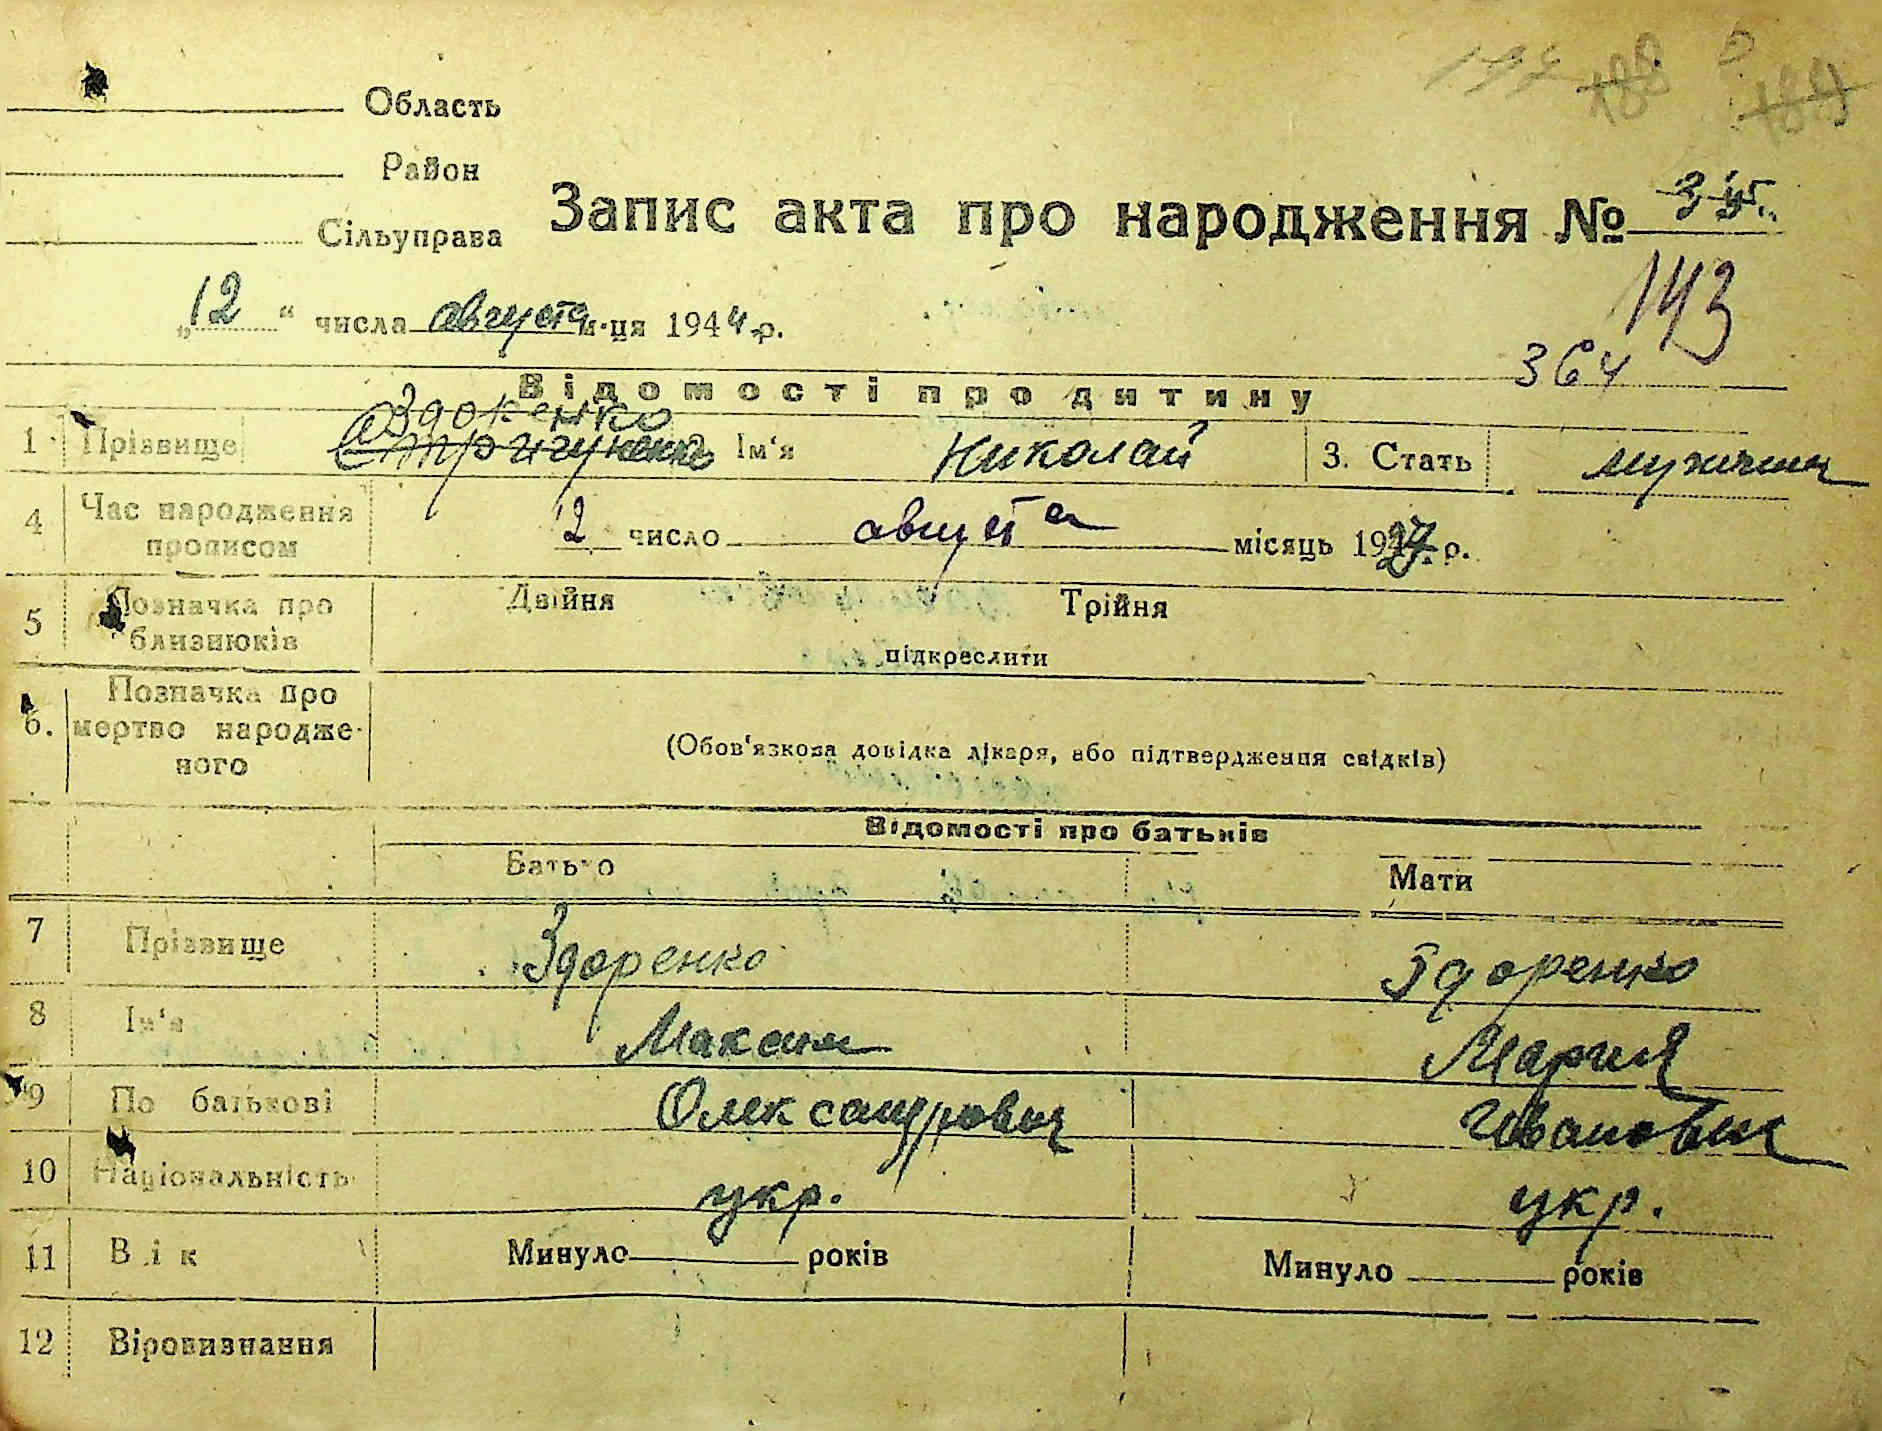 194 188 189
Область
Район
Сільуправа
Запис акта про народження №
143
„12“ числа августа м-ця 1944 р.
364
Відомості про дитину
Здоренко
1 Прізвище Ім'я Николай 3. Стать мужчина
4 Час народження прописом 2 число августа місяць 19 р.
5 Позначка про близнюків Двійня Трійня
підкреслити
6. Позначка про мертво народженого
(Обов'язкова довідка лікаря, або підтвердження свідків)
Відомості про батьків
Батько Мати
7 Прізвище Здоренко Здоренко
8 Ім'я Максим Мария
9 По батькові Олександрович Ивановна
10 Національність укр. укр.
11 Вік Минуло років Минуло років
12 Віровизнання